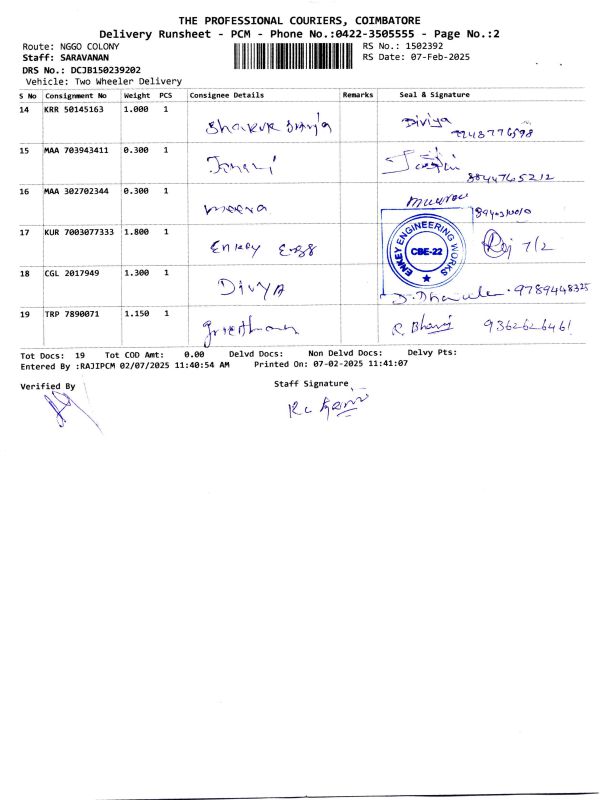 THE PROFESSIONAL COURIERS, COIMBATORE
Delivery Runsheet - PCM - Phone No.:0422-3505555 - Page No.:2
Route: NGGO COLONY RS No.: 1502392
Staff: SARAVANAN RS Date: 07-Feb-2025
DRS No.: DCJB150239202
Vehicle: Two Wheeler Delivery
S No Consignment No Weight PCS Consignee Details Remarks Seal & Signature
14 KRR 50145163 1.000 1 Diviya
15 MAA 703943411 0.300 1 8844765212
16 MAA 302702344 0.300 1 meena
17 KUR 7003077333 1.800 1 Enkey Engg ENKEY ENGINEERING WORKS CBE-22 Raj 7/2
18 CGL 2017949 1.300 1 DIVYA 9789448325
19 TRP 7890071 1.150 1 9362626461
Tot Docs: 19 Tot COD Amt: 0.00 Delvd Docs: Non Delvd Docs: Delvy Pts:
Entered By :RAJIPCM 02/07/2025 11:40:54 AM Printed On: 07-02-2025 11:41:07
Verified By Staff Signature